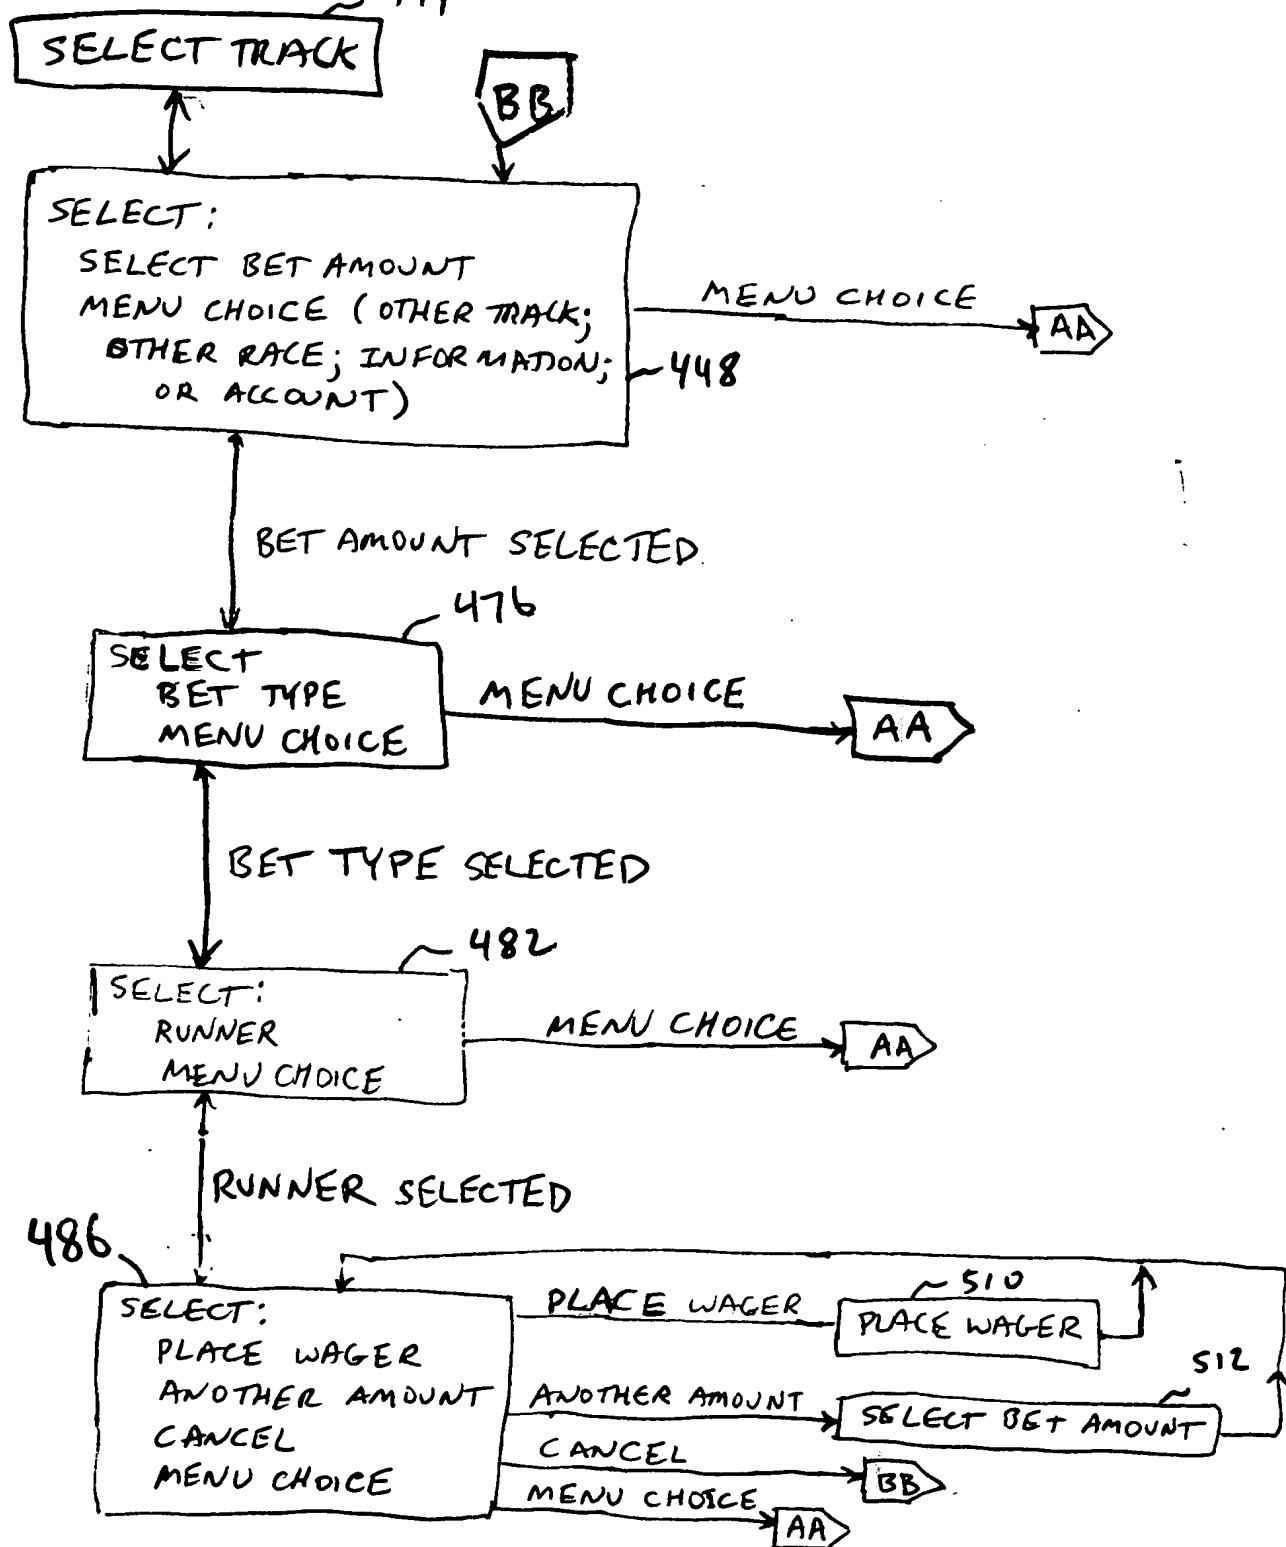 SELECT TRACK
BB
SELECT:
SELECT BET AMOUNT
MENU CHOICE (OTHER TRACK;
OTHER RACE; INFORMATION;
OR ACCOUNT)
448
MENU CHOICE
AA
BET AMOUNT SELECTED
476
SELECT
BET TYPE
MENU CHOICE
MENU CHOICE
AA
BET TYPE SELECTED
482
SELECT:
RUNNER
MENU CHOICE
MENU CHOICE
AA
RUNNER SELECTED
486
SELECT:
PLACE WAGER
ANOTHER AMOUNT
CANCEL
MENU CHOICE
PLACE WAGER
510
PLACE WAGER
512
ANOTHER AMOUNT
SELECT BET AMOUNT
CANCEL
BB
MENU CHOICE
AA